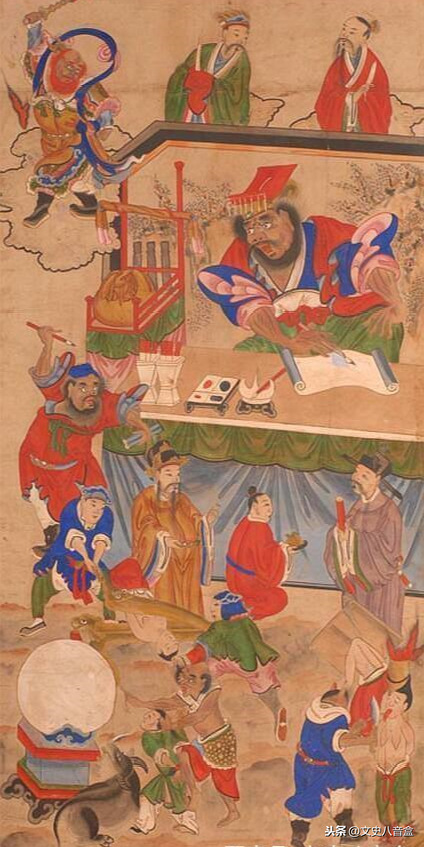 头条@文史八音盒